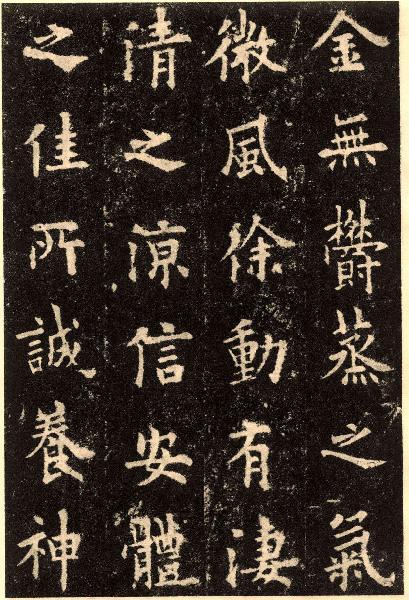 金無鬱蒸之氣
微風徐動有淒
清之涼信安體
之佳所誠養神